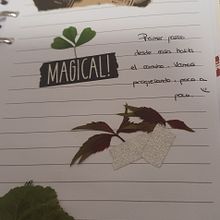 MAGICAL!
Primer paso
desde más habita
el camino. Vamos
progresando poco a
poco.